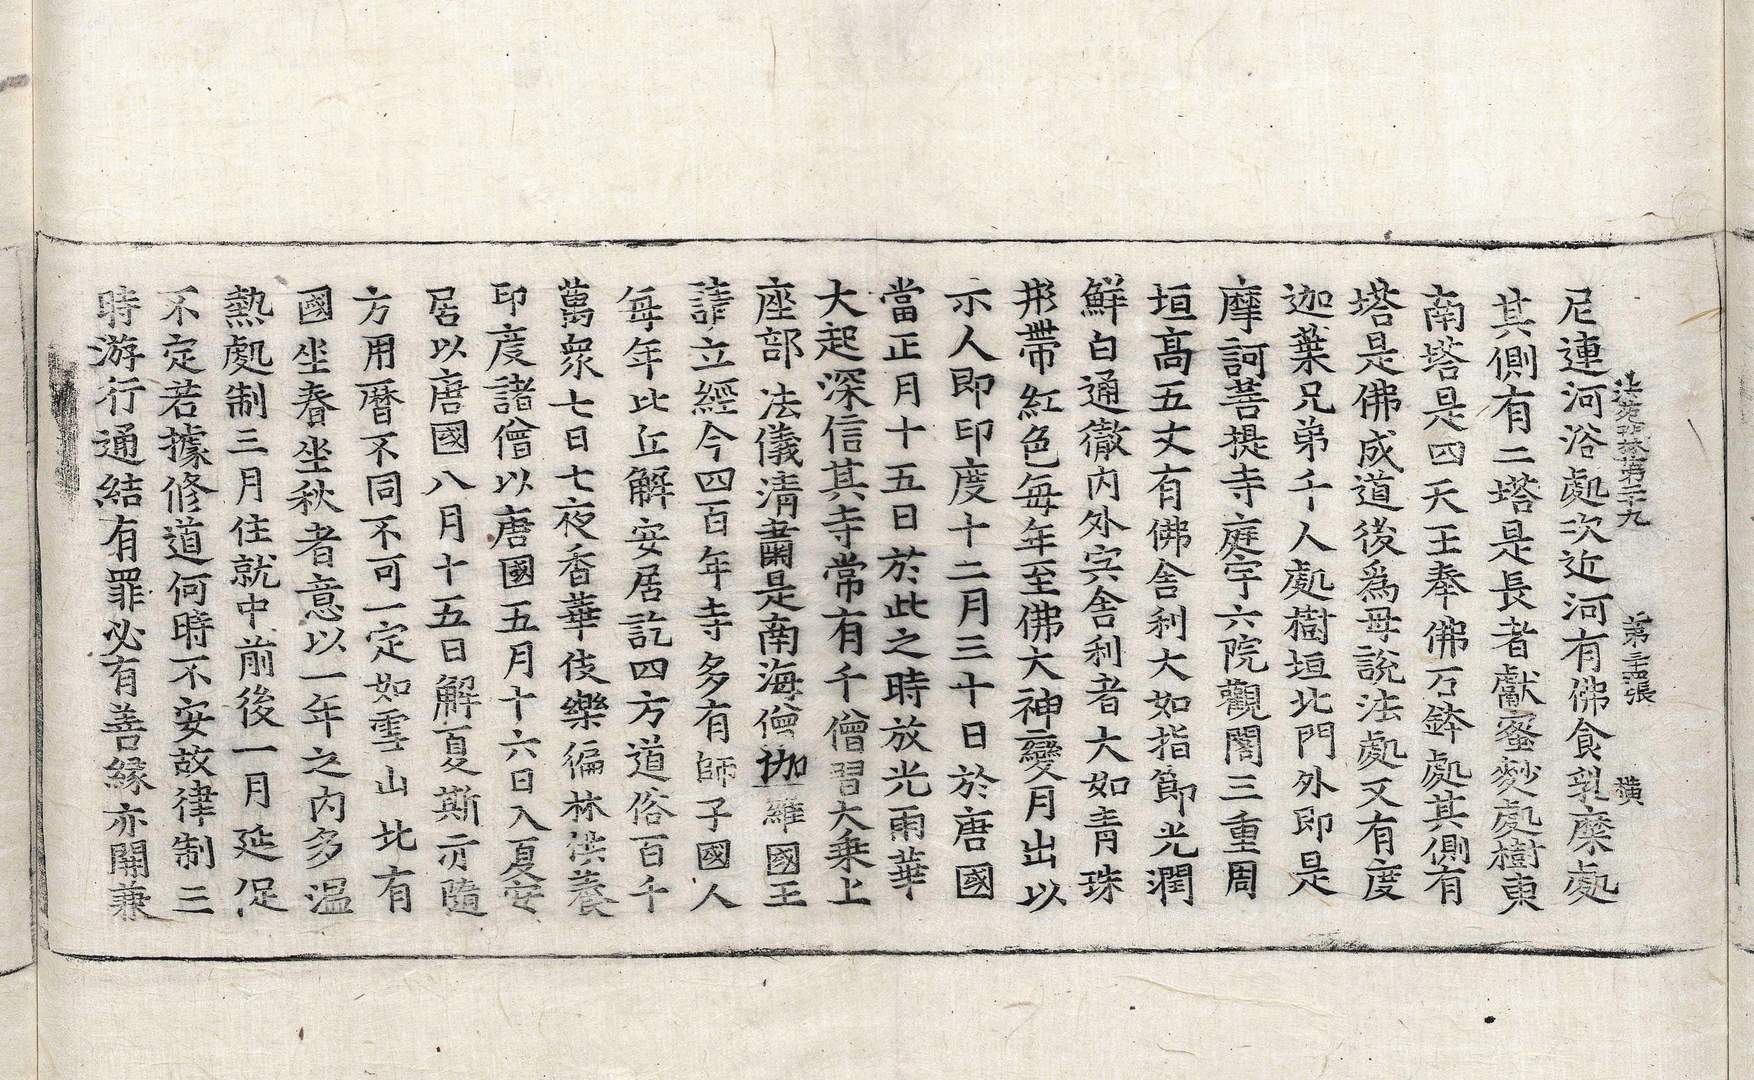 法苑珠林第二十九　第三十五張　横
尼連河浴處次近河有佛食乳糜處
其側有二塔是長者獻蜜麨處樹東
南塔是四天王奉佛石鉢處其側有
塔是佛成道後爲母說法處又有度
迦葉兄弟千人處樹垣北門外即是
摩訶菩提寺庭宇六院觀閣三重周
垣髙五丈有佛舍利大如指節光潤
鮮白通徹內外宍舍利者大如青珠
形帶紅色每年至佛大神變月出以
示人即印度十二月三十日於唐國
當正月十五日於此之時放光雨華
大起深信其寺常有千僧習大乗上
座部法儀清肅是南海僧伽羅國王
請立經今四百年寺多有師子國人
每年比丘解安居訖四方道俗百千
萬衆七日七夜香華伎樂徧林供養
印度諸僧以唐國五月十六日入夏安
居以唐國八月十五日解夏斯亦隨
方用曆不同不可一定如雪山北有
國坐春坐秋者意以一年之內多温
熱處制三月住就中前後一月延促
不定若據修道何時不安故律制三
時游行通結有罪必有善縁亦開兼